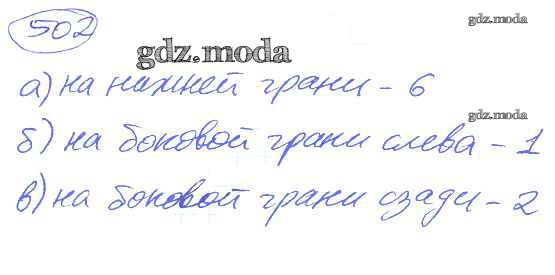 502
gdz.moda
gdz.moda
а) на нижней грани - 6
gdz.moda
б) на боковой грани слева - 1
в) на боковой грани сзади - 2